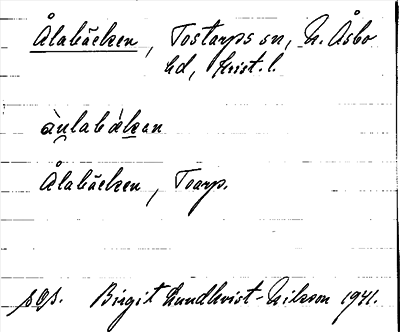 Ålabäcken, Tostarps sn, N. Åsbo
hd, Krist. l.
Ålabäcken, Toarp.
Birgit Lundkvist-Nilsson 1941.